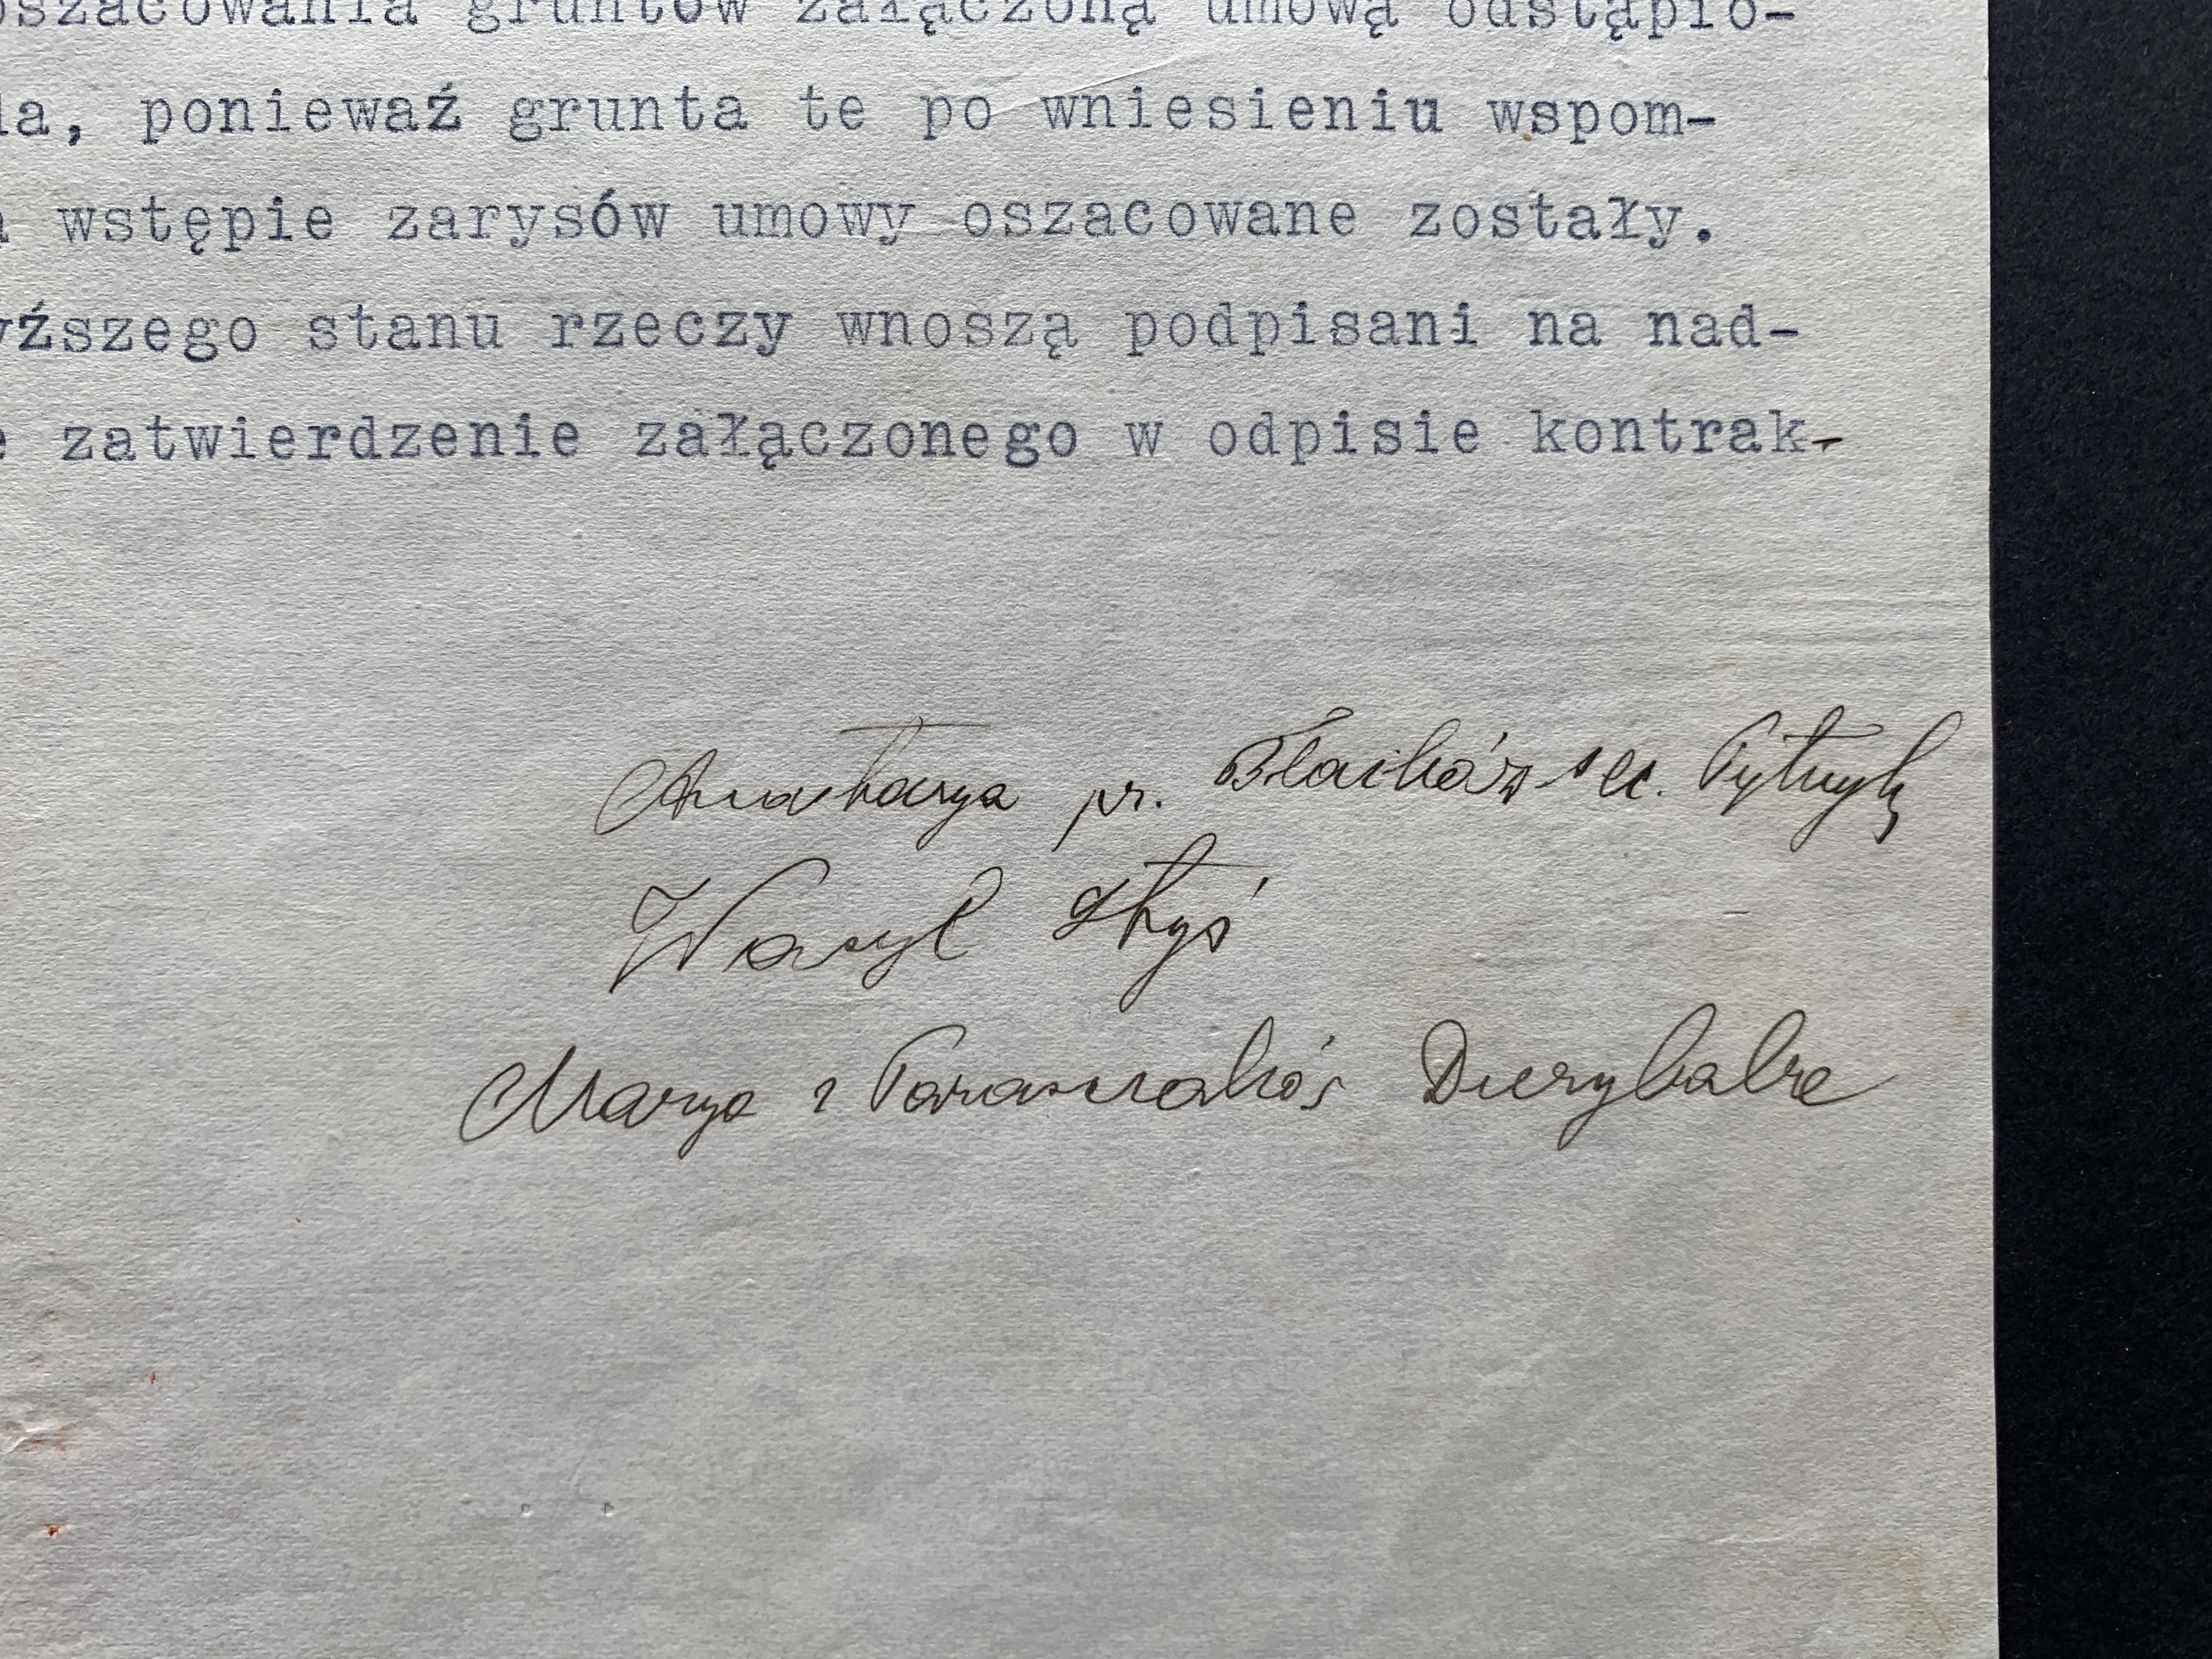 oszacowania gruntów załączoną umową odstąpio-
la, ponieważ grunta te po wniesieniu wspom-
wstępie zarysów umowy oszacowane zostały.
yższego stanu rzeczy wnoszą podpisani na nad-
e zatwierdzenie załączonego w odpisie kontrak-
pr.
Wasyl
Marya i